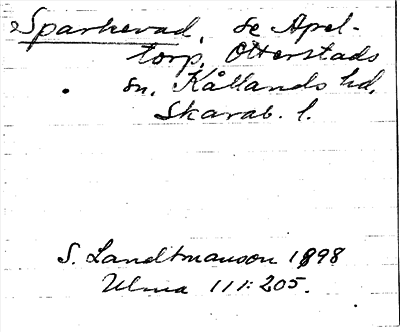 Sparkevad, se Apel-
torp, Otterstads
sn, Kållands hd,
Skarab. l.
S. Landtmanson 1898
Ulma 111:205.